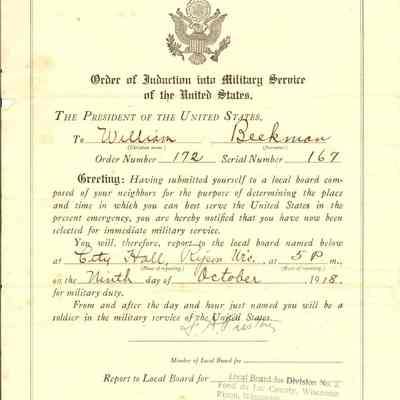 Order of Induction into Military Service
of the United States.
THE PRESIDENT OF THE UNITED STATES,
To William Beekman
(Christian name) (Surname)
Order Number 172 Serial Number 167
Greeting: Having submitted yourself to a local board com-
posed of your neighbors for the purpose of determining the place
and time in which you can best serve the United States in
the present emergency, you are hereby notified that you have now been
selected for immediate military service.
You will, therefore, report to the local board named below
at City Hall, Ripon Wis., at 5 P m.,
(Place of reporting) (Hour of reporting)
on the Ninth day of October 1918,
for military duty.
From and after the day and hour just named you will be a
soldier in the military service of the United States.
Member of Local Board for
Report to Local Board for Local Board for Division No. 2
Fond du Lac County, Wisconsin
Ripon, Wisconsin